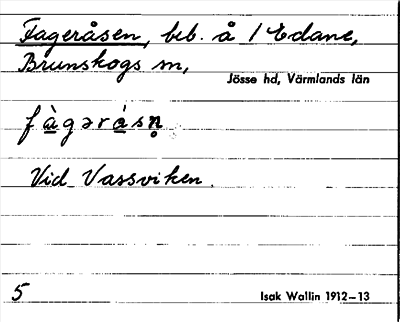 Fageråsen, beb. å 1 Edane,
Brunskogs sn,
Jösse hd, Värmlands län
fàgərásn̥
Vid Vassviken.
5
Isak Wallin 1912–13